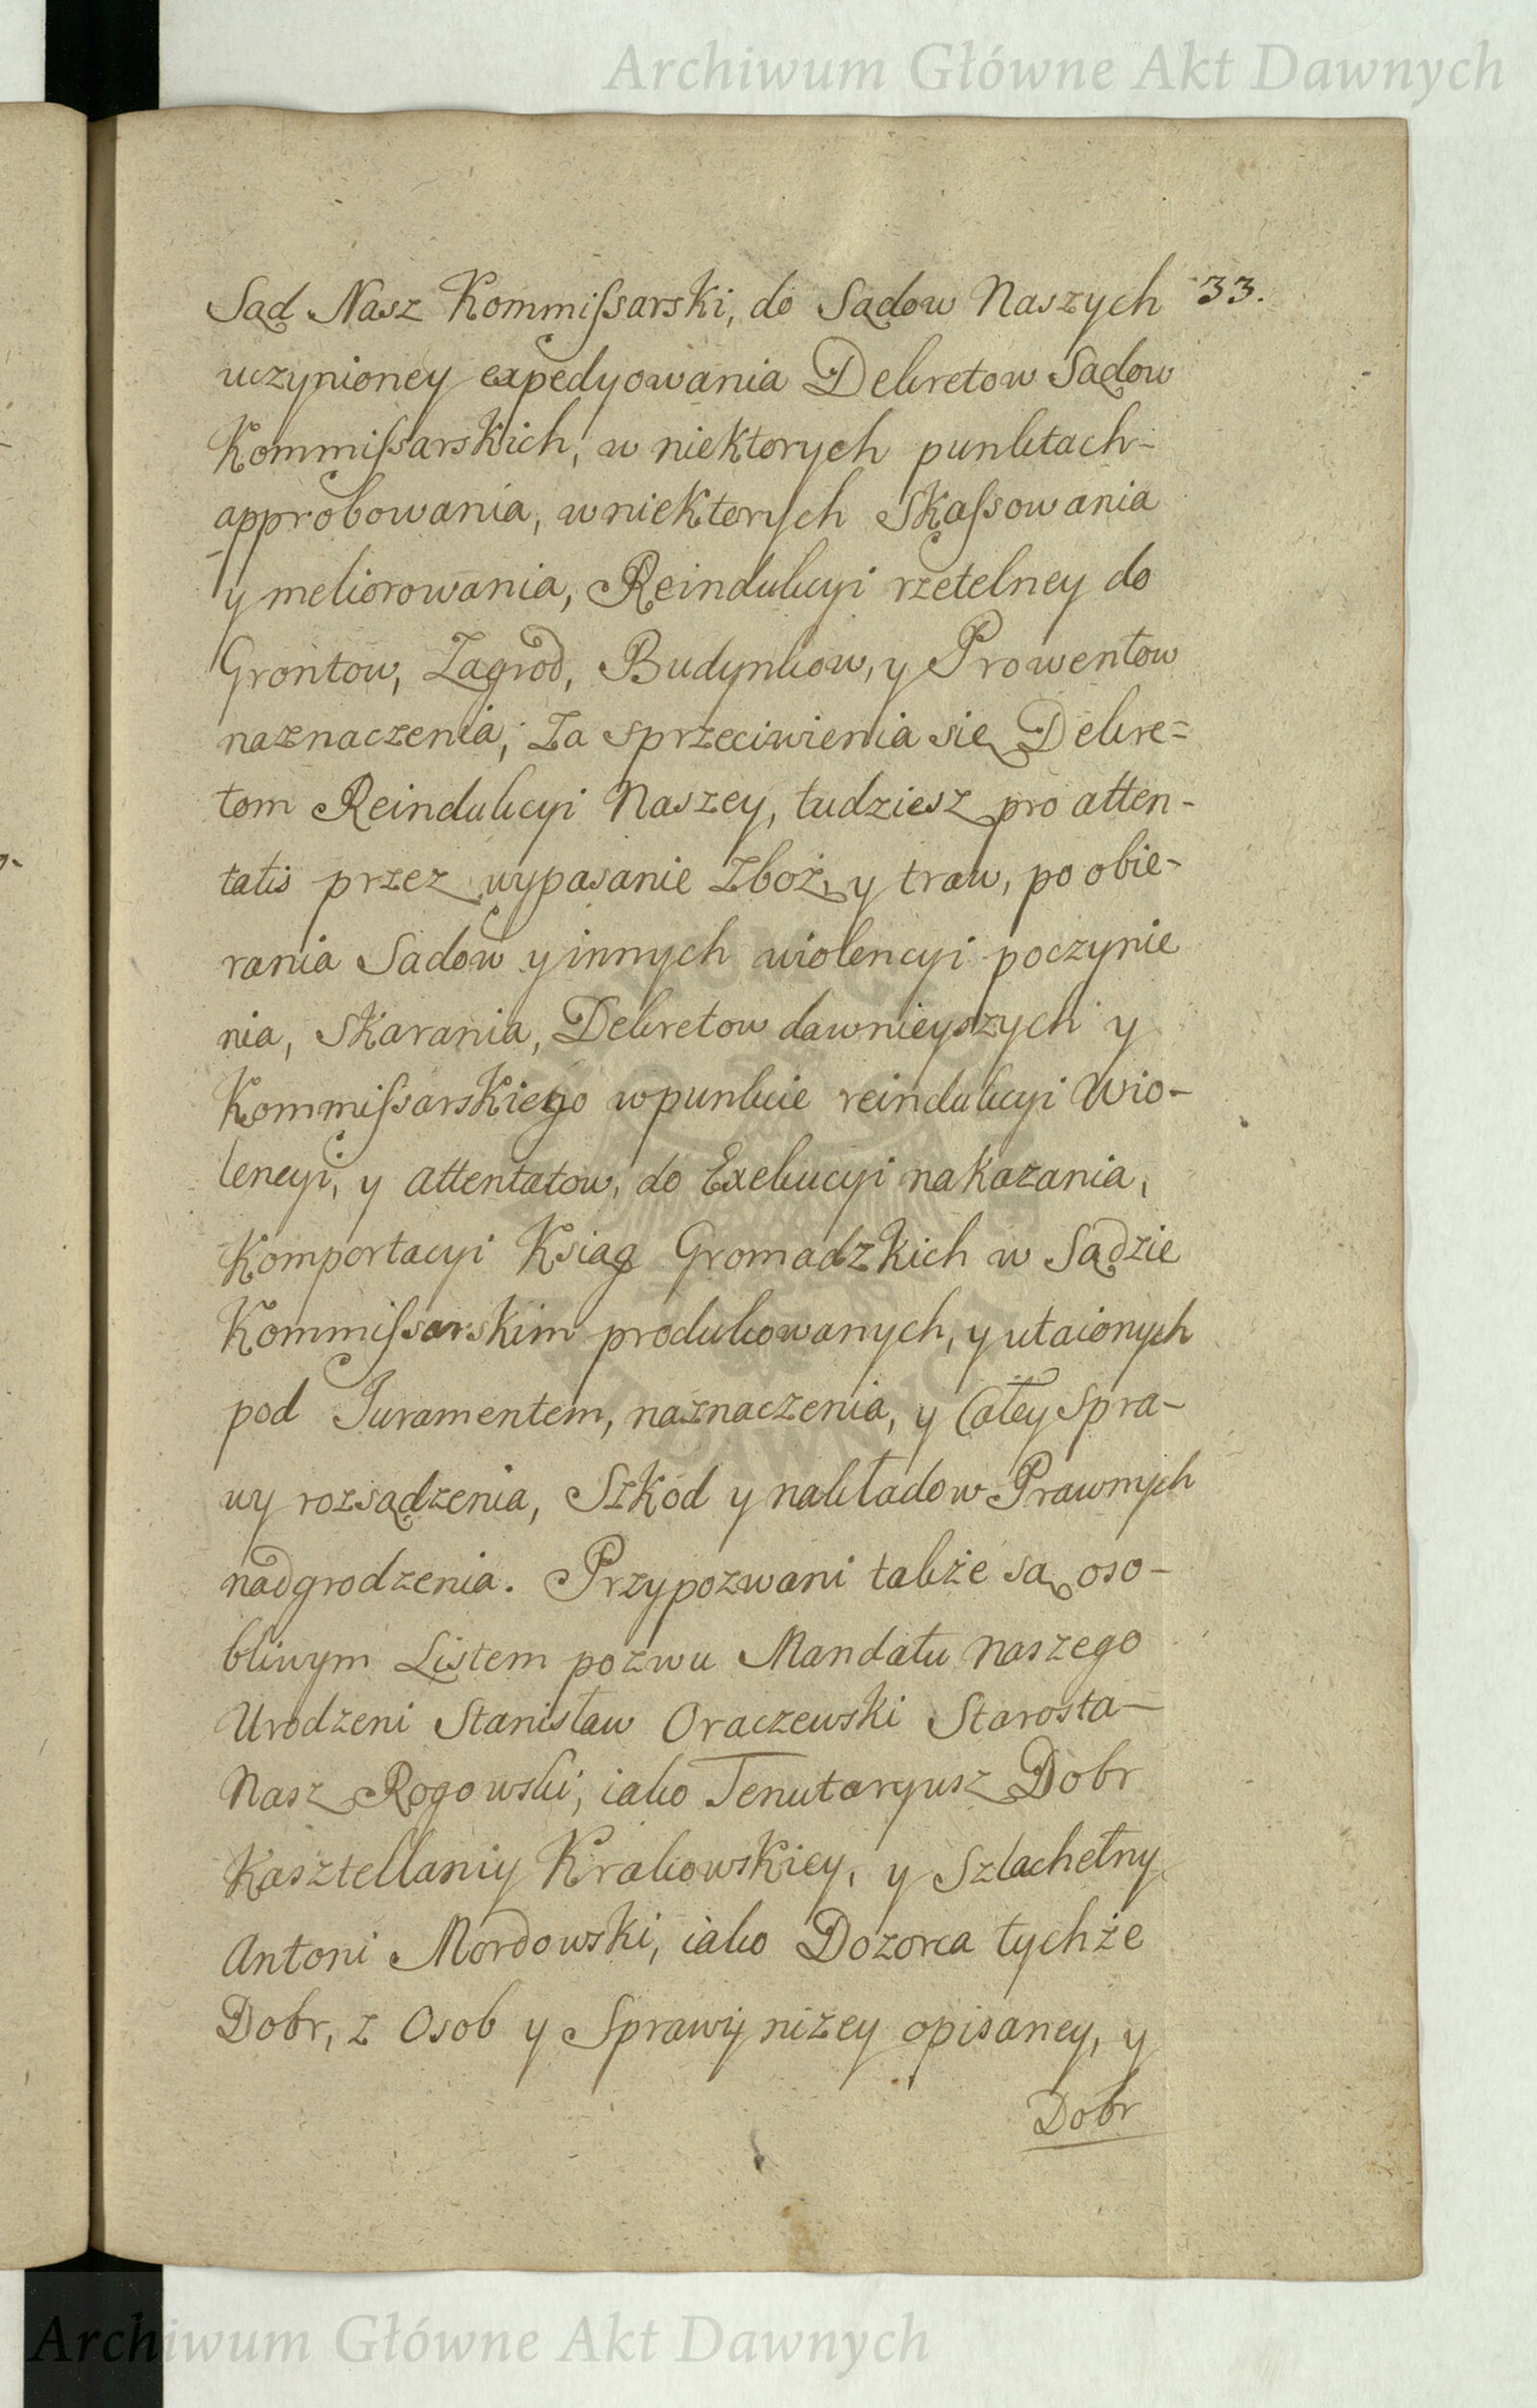 Archiwum Główne Akt Dawnych
Sąd Nasz Kommissarski, do Sądow Naszych 33.
uczynioney expedyowania Dekretow Sądow
Kommissarskich, w niektorych punktach-
approbowania, w niektorych skassowania
y meliorowania, Reindukcyi rzetelney do
Grontow, Zagrod, Budynkow, y Prowentow
naznaczenia, Za sprzeciwienia się Dekre=
tom Reindukcyi Naszey, tudziesz pro atten-
tatis przez wypasanie Zboż, y traw, po obie-
rania Sadow y innych wiolencyi poczynie
nia, skarania, Dekretow dawnieyszych y
Kommissarskiego w punkcie reindukcyi Wio-
lencyi, y attentatow, do Exekucyi nakazania,
Komportacyi Ksiąg Gromadzkich w Sądzie
Kommissarskim produkowanych, y utaionych
pod Juramentem, naznaczenia, y Całey Spra-
wy rozsądzenia, Szkod y nakładow Prawnych
nadgrodzenia. Przypozwani także są oso-
bliwym Listem pozwu Mandatu Naszego
Urodzeni Stanisław Oraczewski Starosta-
Nasz Rogowski, iako Tenutaryusz Dobr
Kasztellaniy Krakowskiey, y Szlachetny
Antoni Mordowski, iako Dozorca tychże
Dobr, z Osob y Sprawy niżey opisaney, y
Dobr
Archiwum Główne Akt Dawnych